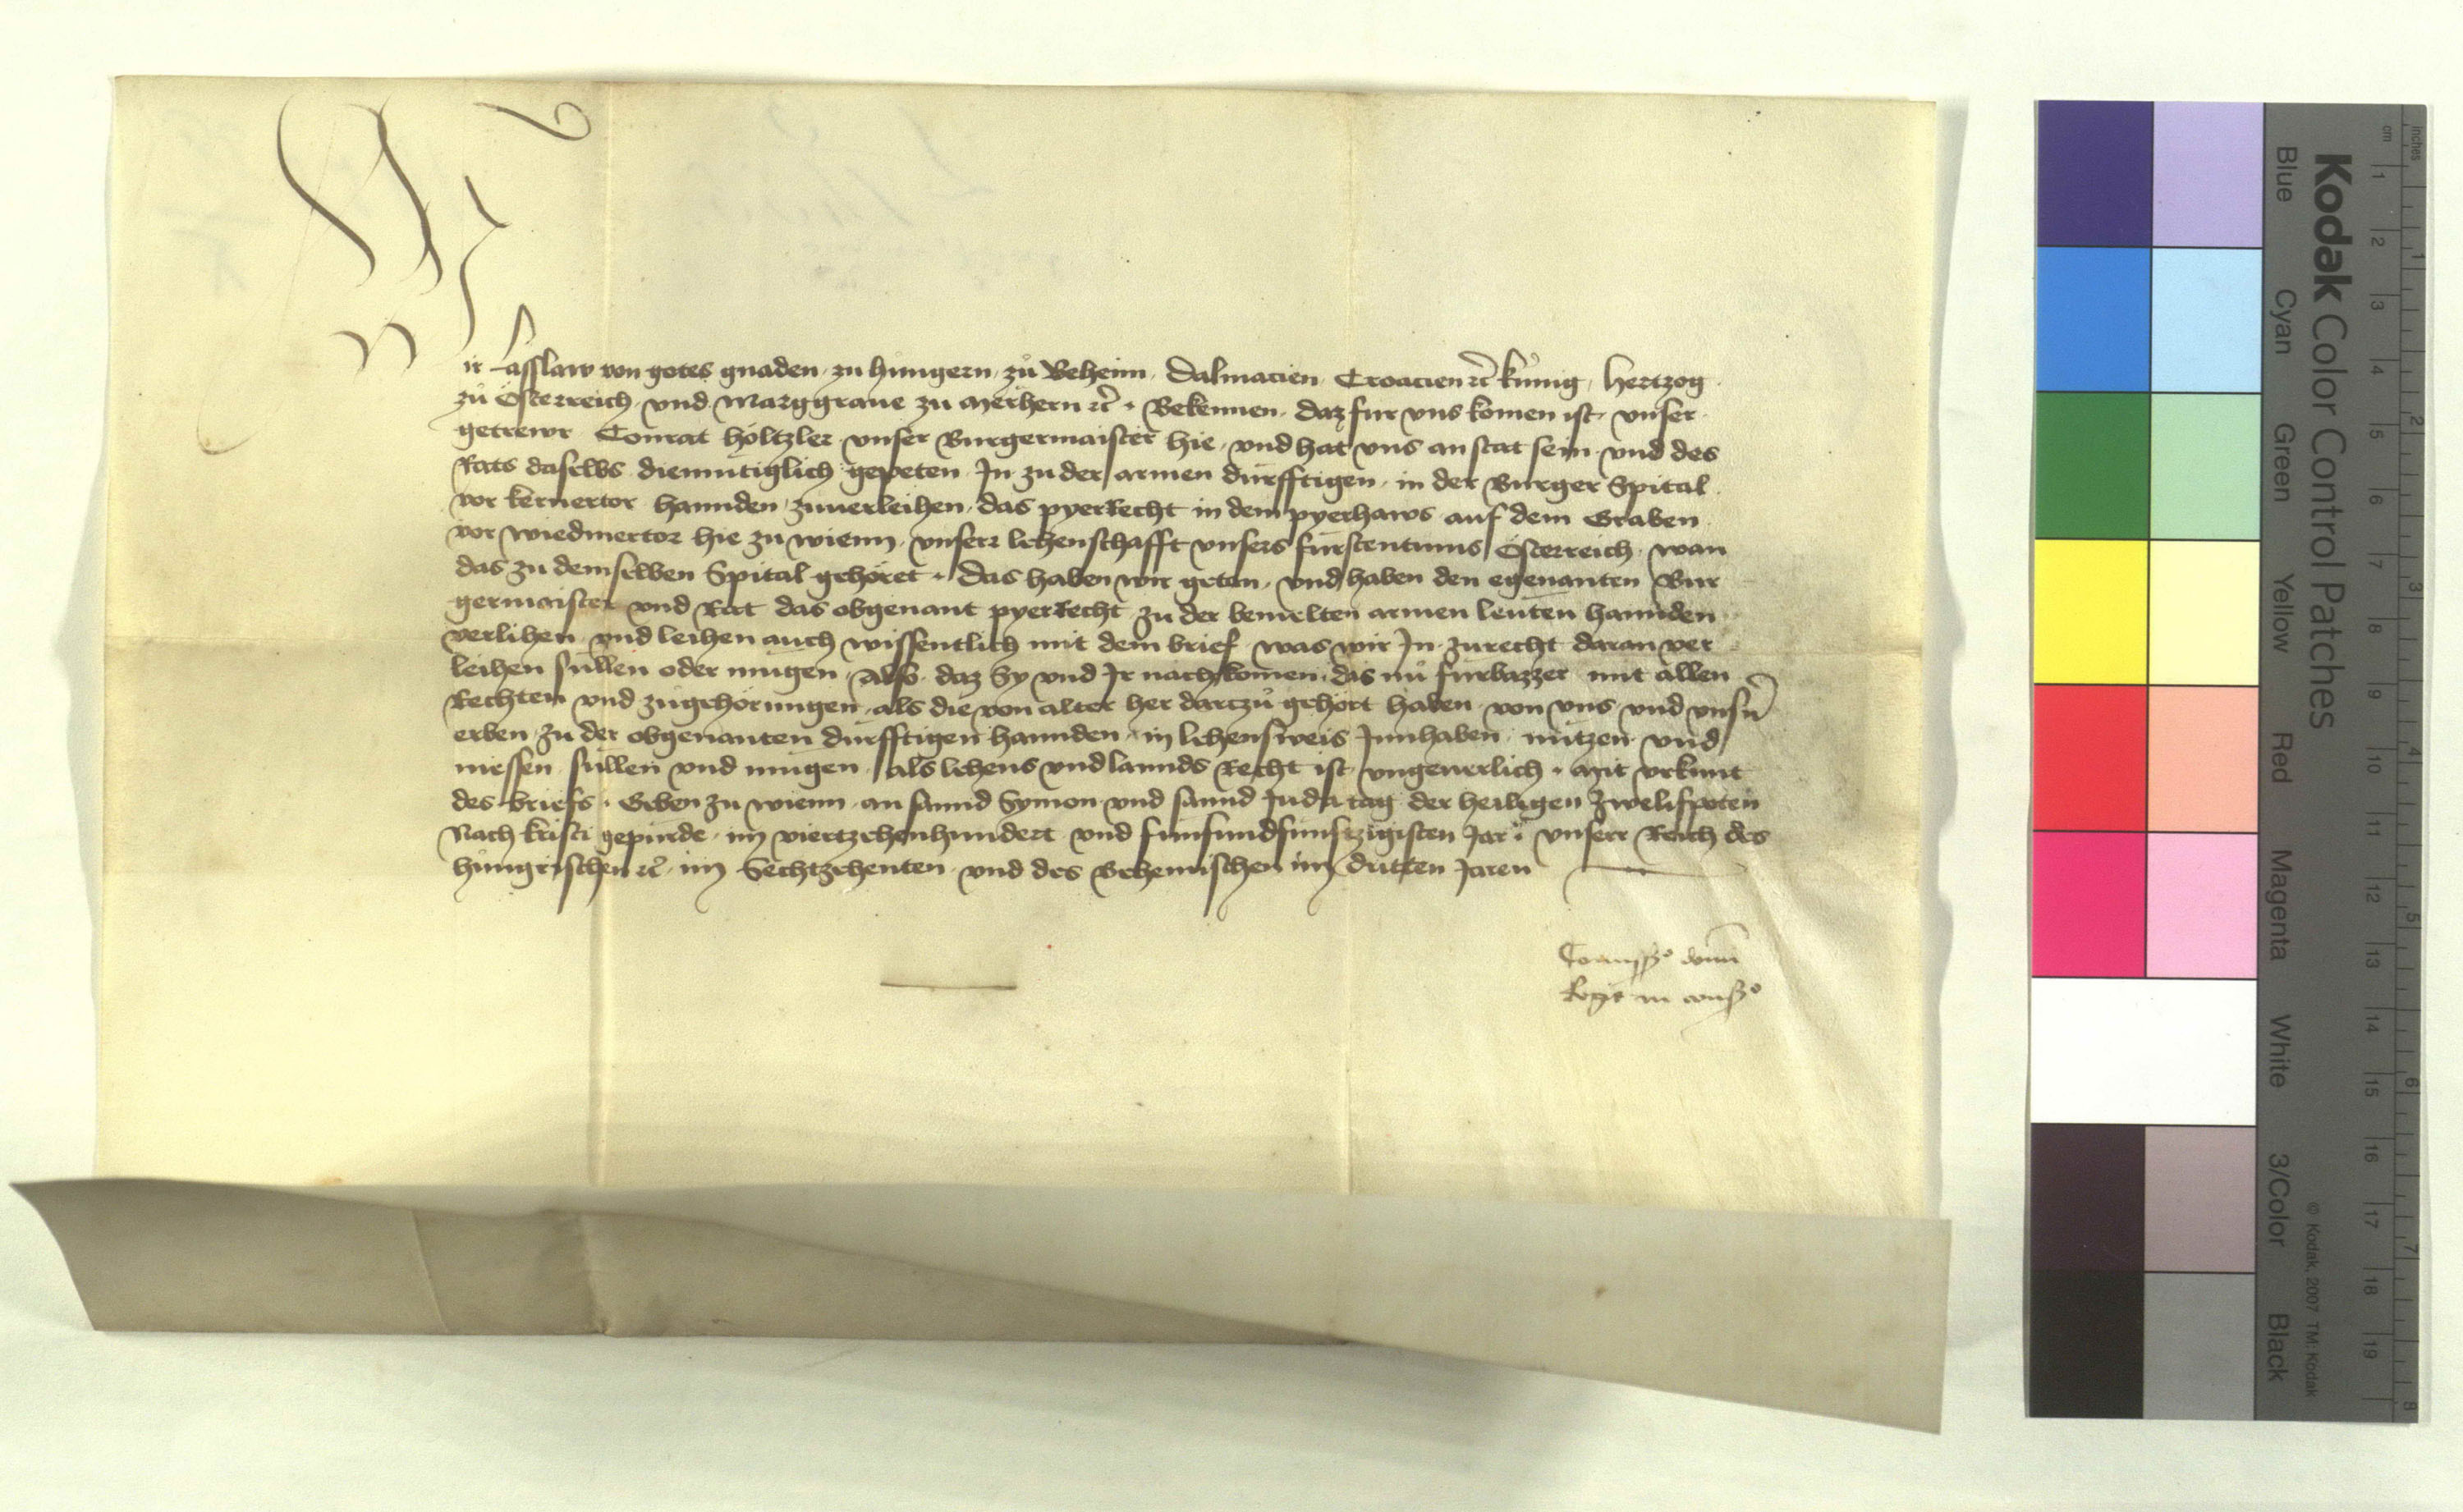 Wir Lasslaw von gotes gnaden, zu hungern, zů Beheim, Dalmacien, Croacien ꝛc̃ kúnig, hertzog
zů Österreich, vnd Marggraue zu Merhern ꝛc̃. Bekennen, daz fur vns komen ist, vnser
getrewr Conrat höltzler vnser Burgermaister hie, vnd hat vns an stat sein, vnd des
Rats daselbs diemütiglich gepeten, In zu der armen dürfftigen, in der Burger Spital
vor kernertor hannden, zuuerleihen, das pyerRecht in dem pyerhaws auf dem Graben
vor wiedmertor hie zu wienn, vnserr lehenschafft vnsers fürstentums Österreich, wan
das zu demselben Spital gehöret. Das haben wir getan, vnd haben den egenanten Bur
germaister vnd Rat das obgenant pyerRecht zu der bemelten armen leuten hannden
verlihen, vnd leihen auch wissentlich mit dem brief, was wir In zurecht daran ver
leihen süllen oder mugen, Also, daz Sy vnd Ir nachkomen, das nů fürbazzer mit allen
Rechten vnd zůgehörungen, als die von alter her dartzů gehört haben, von vns vnd vnsñ
erben, zu der obgenanten dürfftigen hannden, in lehensweis Innhaben, nützen vnd
niessen süllen vnd mugen, als lehens vnd lannds Recht ist, vngeuerlich. Mit vrkunt
des briefs. Geben zu wienn, an sannd Symon vnd sannd Juda tag der heiligen zwelifpoten
Nach kristi gepurde, im viertzehenhundert vnd fünfundfünftzigisten Jar. vnserr Reich des
hungrischen ꝛc̃, im Sechtzehenten, vnd des Behemischen im dritten Jaren
Comissio domi
Regis in consio
Kodak Color Control Patches
Blue Cyan Green Yellow Red Magenta White 3/Color Black
© Kodak, 2007 TM: Kodak
inches 1 2 3 4 5 6 7 8
cm 1 2 3 4 5 6 7 8 9 10 11 12 13 14 15 16 17 18 19